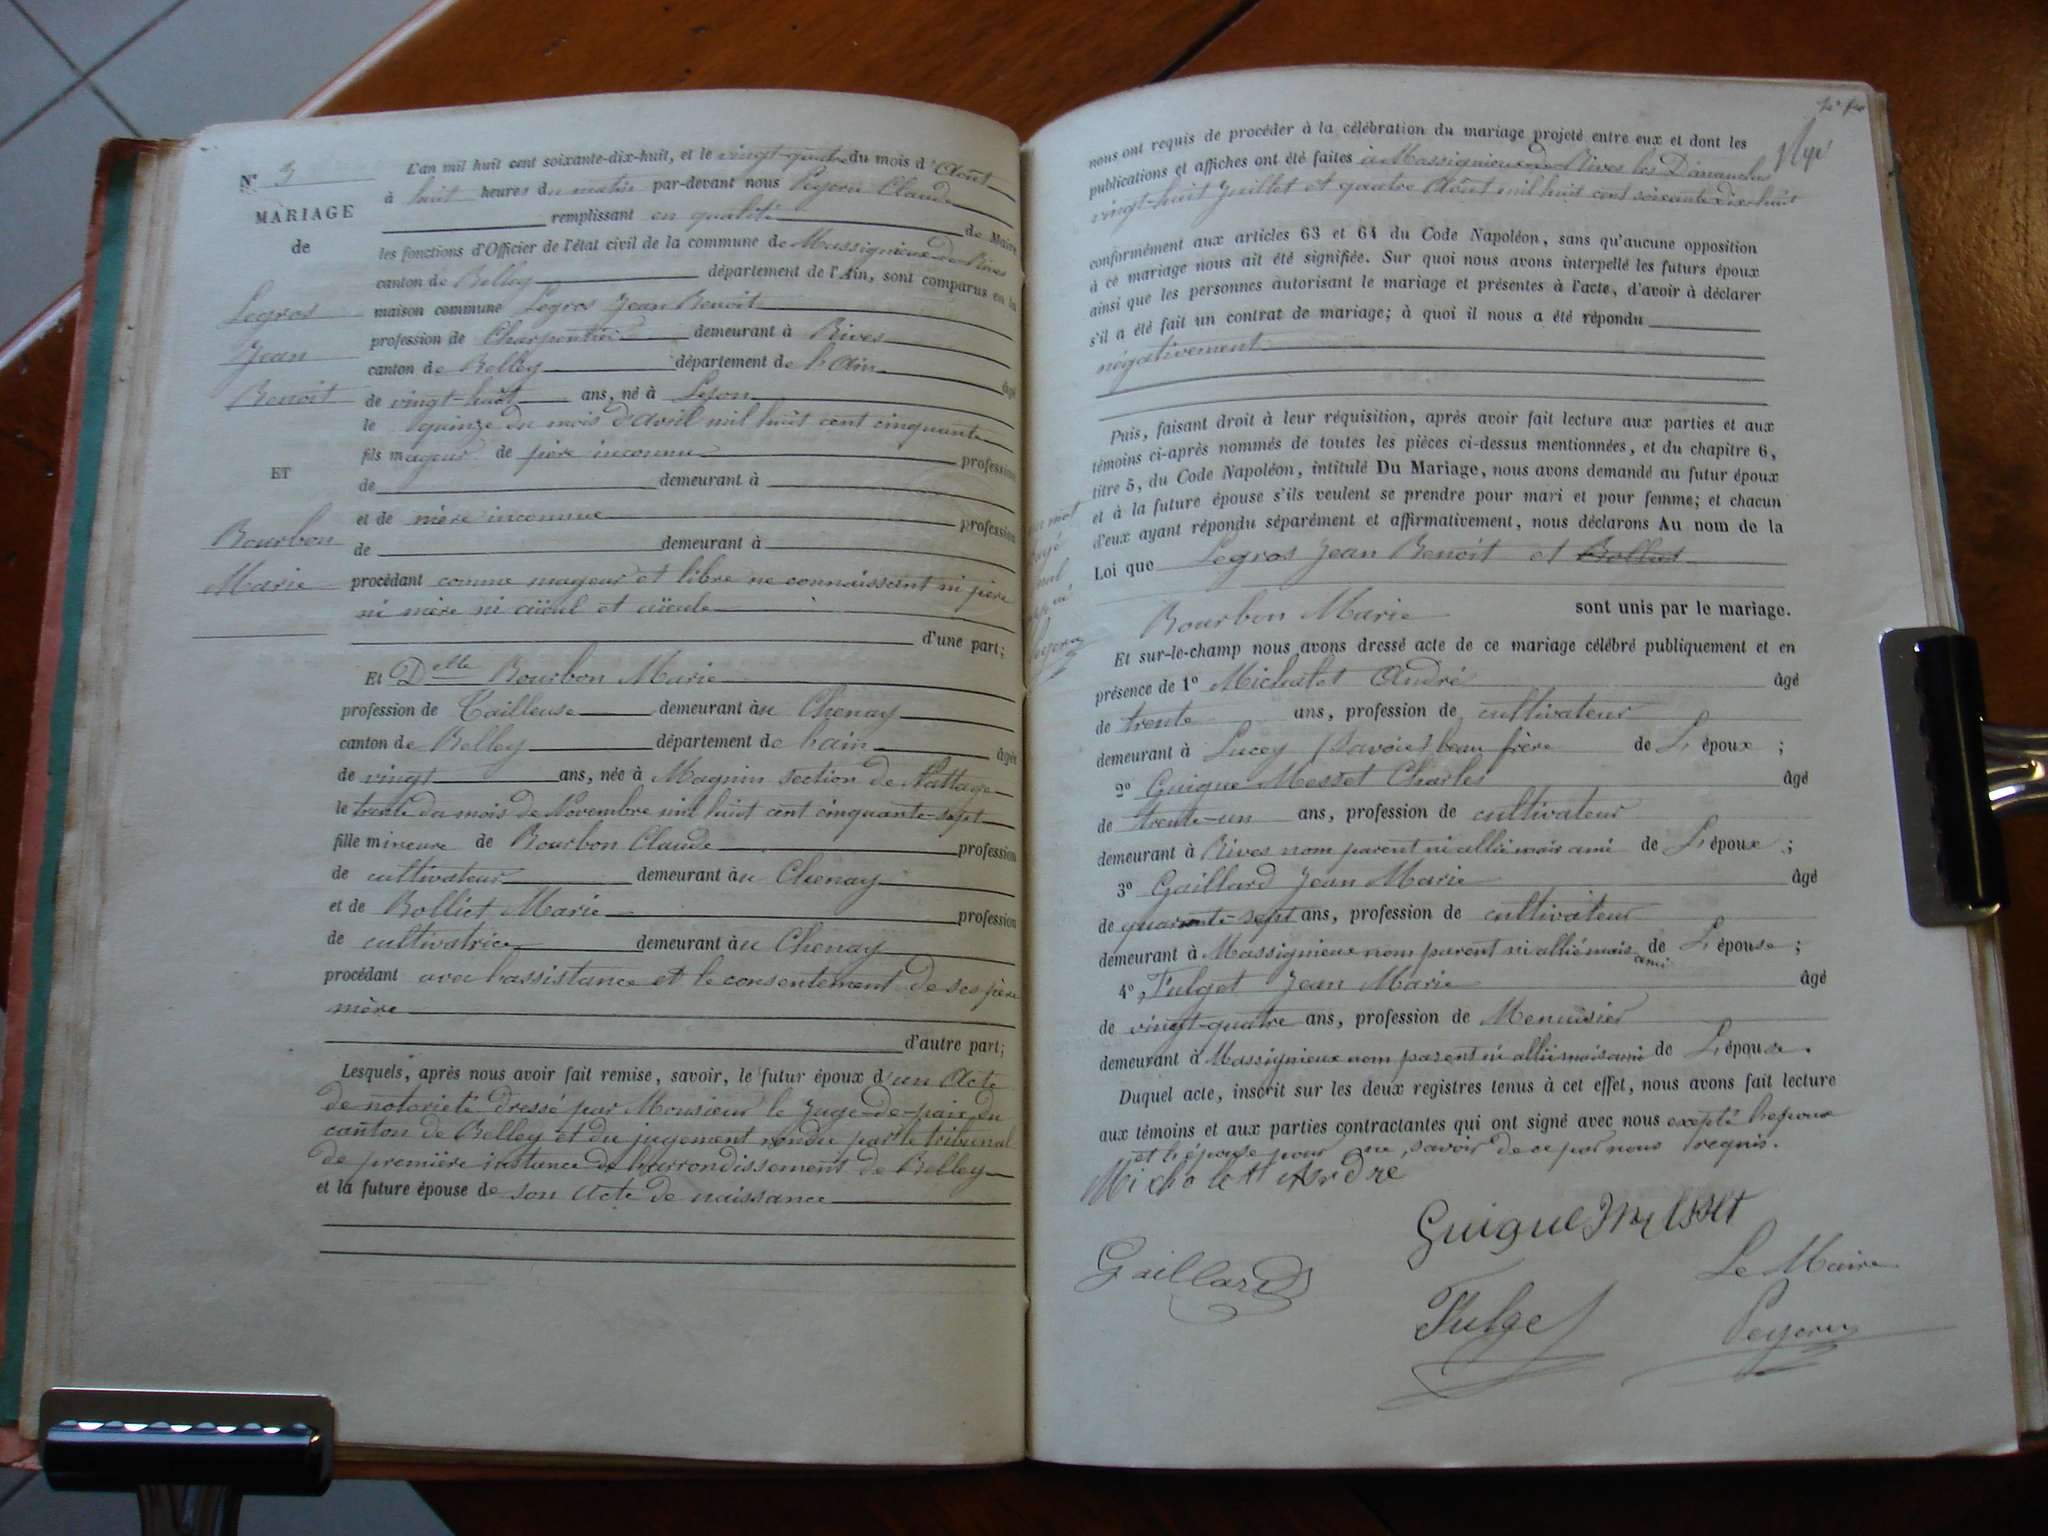 N° 3
MARIAGE
de
Legros
Jean
Benoit
ET
Bourbon
Marie
L'an mil huit cent soixante-dix-huit, et le vingt-quatre du mois d'Août
à huit heures du matin par-devant nous Peyeru Claude
remplissant en qualité de Maire
les fonctions d'Officier de l'état civil de la commune de Massignieux-de-Rives
canton de Belley département de l'Ain, sont comparus en la
maison commune Legros Jean Benoit
profession de Charpentier demeurant à Rives
canton de Belley département de l'Ain âgé
de vingt-huit ans, né à Lyon
le quinze du mois d'avril mil huit cent cinquante
fils mageur de père inconnu profession
de demeurant à
et de mère inconnue profession
de demeurant à
procédant comme mageur et libre ne connaissant ni père
ni mère ni aïeul et aïeule
d'une part;
Et Delle Bourbon Marie
profession de Tailleuse demeurant àu Chenay
canton de Belley département de l'ain âgée
de vingt ans, née à Magnin section de Nattage
le trente du mois de Novembre mil huit cent cinquante-sept
fille mineure de Bourbon Claude profession
de cultivateur demeurant àu Chenay
et de Bolliet Marie profession
de cultivatrice demeurant àu Chenay
procédant avec l'assistance et le consentement de ses père
mère
d'autre part;
Lesquels, après nous avoir fait remise, savoir, le futur époux d'un Acte
de notorieté dressé par Monsieur le Juge-de-paix du
canton de Belley et du jugement rendu par le tribunal
de première instance de l'arrondissement de Belley
et la future épouse de son Acte de naissance
nous ont requis de procéder à la célébration du mariage projeté entre eux et dont les
publications et affiches ont été faites à Massignieux-de-Rives les Dimanches
vingt-huit Juillet et quatre Août mil huit cent soixante dix-huit
conformément aux articles 63 et 64 du Code Napoléon, sans qu'aucune opposition
à ce mariage nous ait été signifiée. Sur quoi nous avons interpellé les futurs époux
ainsi que les personnes autorisant le mariage et présentes à l'acte, d'avoir à déclarer
s'il a été fait un contrat de mariage; à quoi il nous a été répondu
négativement
Puis, faisant droit à leur réquisition, après avoir fait lecture aux parties et aux
témoins ci-après nommés de toutes les pièces ci-dessus mentionnées, et du chapitre 6,
titre 5, du Code Napoléon, intitulé Du Mariage, nous avons demandé au futur époux
et à la future épouse s'ils veulent se prendre pour mari et pour femme; et chacun
d'eux ayant répondu séparément et affirmativement, nous déclarons Au nom de la
Loi que Legros Jean Benoit et
Bourbon Marie sont unis par le mariage.
Et sur-le-champ nous avons dressé acte de ce mariage célébré publiquement et en
présence de 1° Michalet André âgé
de trente ans, profession de cultivateur
demeurant à Lucey (Savoie) beau frère de L'époux ;
2° Guigue Messet Charles âgé
de trente-un ans, profession de cultivateur
demeurant à Rives nom parent ni allié mais ami de L'époux ;
3° Gaillard Jean Marie âgé
de quarante-sept ans, profession de cultivateur
demeurant à Massignieux nom parent ni allié mais ami de L'épouse ;
4° Fulget Jean Marie âgé
de vingt-quatre ans, profession de Menuisier
demeurant à Massignieux nom parent ni allié mais ami de L'épouse.
Duquel acte, inscrit sur les deux registres tenus à cet effet, nous avons fait lecture
aux témoins et aux parties contractantes qui ont signé avec nous excepté l'époux
et l'épouse pour ne savoir de ce par nous requis.
Michalet Andre
Guigue Messet
Gaillard
Le Maire
Fulget
Peyeru